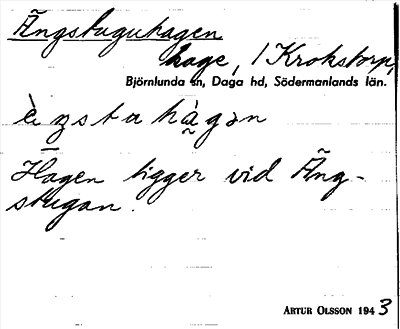 Ängstuguhagen
hage, / Krokstorp,
Björnlunda sn, Daga hd, Södermanlands län.
Hagen ligger vid Äng-
stugan.
ARTUR OLSSON 1943